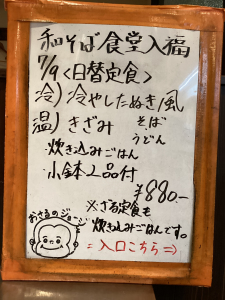 和そば食堂入福
7/9<日替定食>
冷)冷やしたぬき/風
温)きざみ そば
うどん
炊き込みごはん
小鉢2品付
¥880.-
※ざる定食も
炊き込みごはんです。
おさるのジョージ
=入口こちら⇒